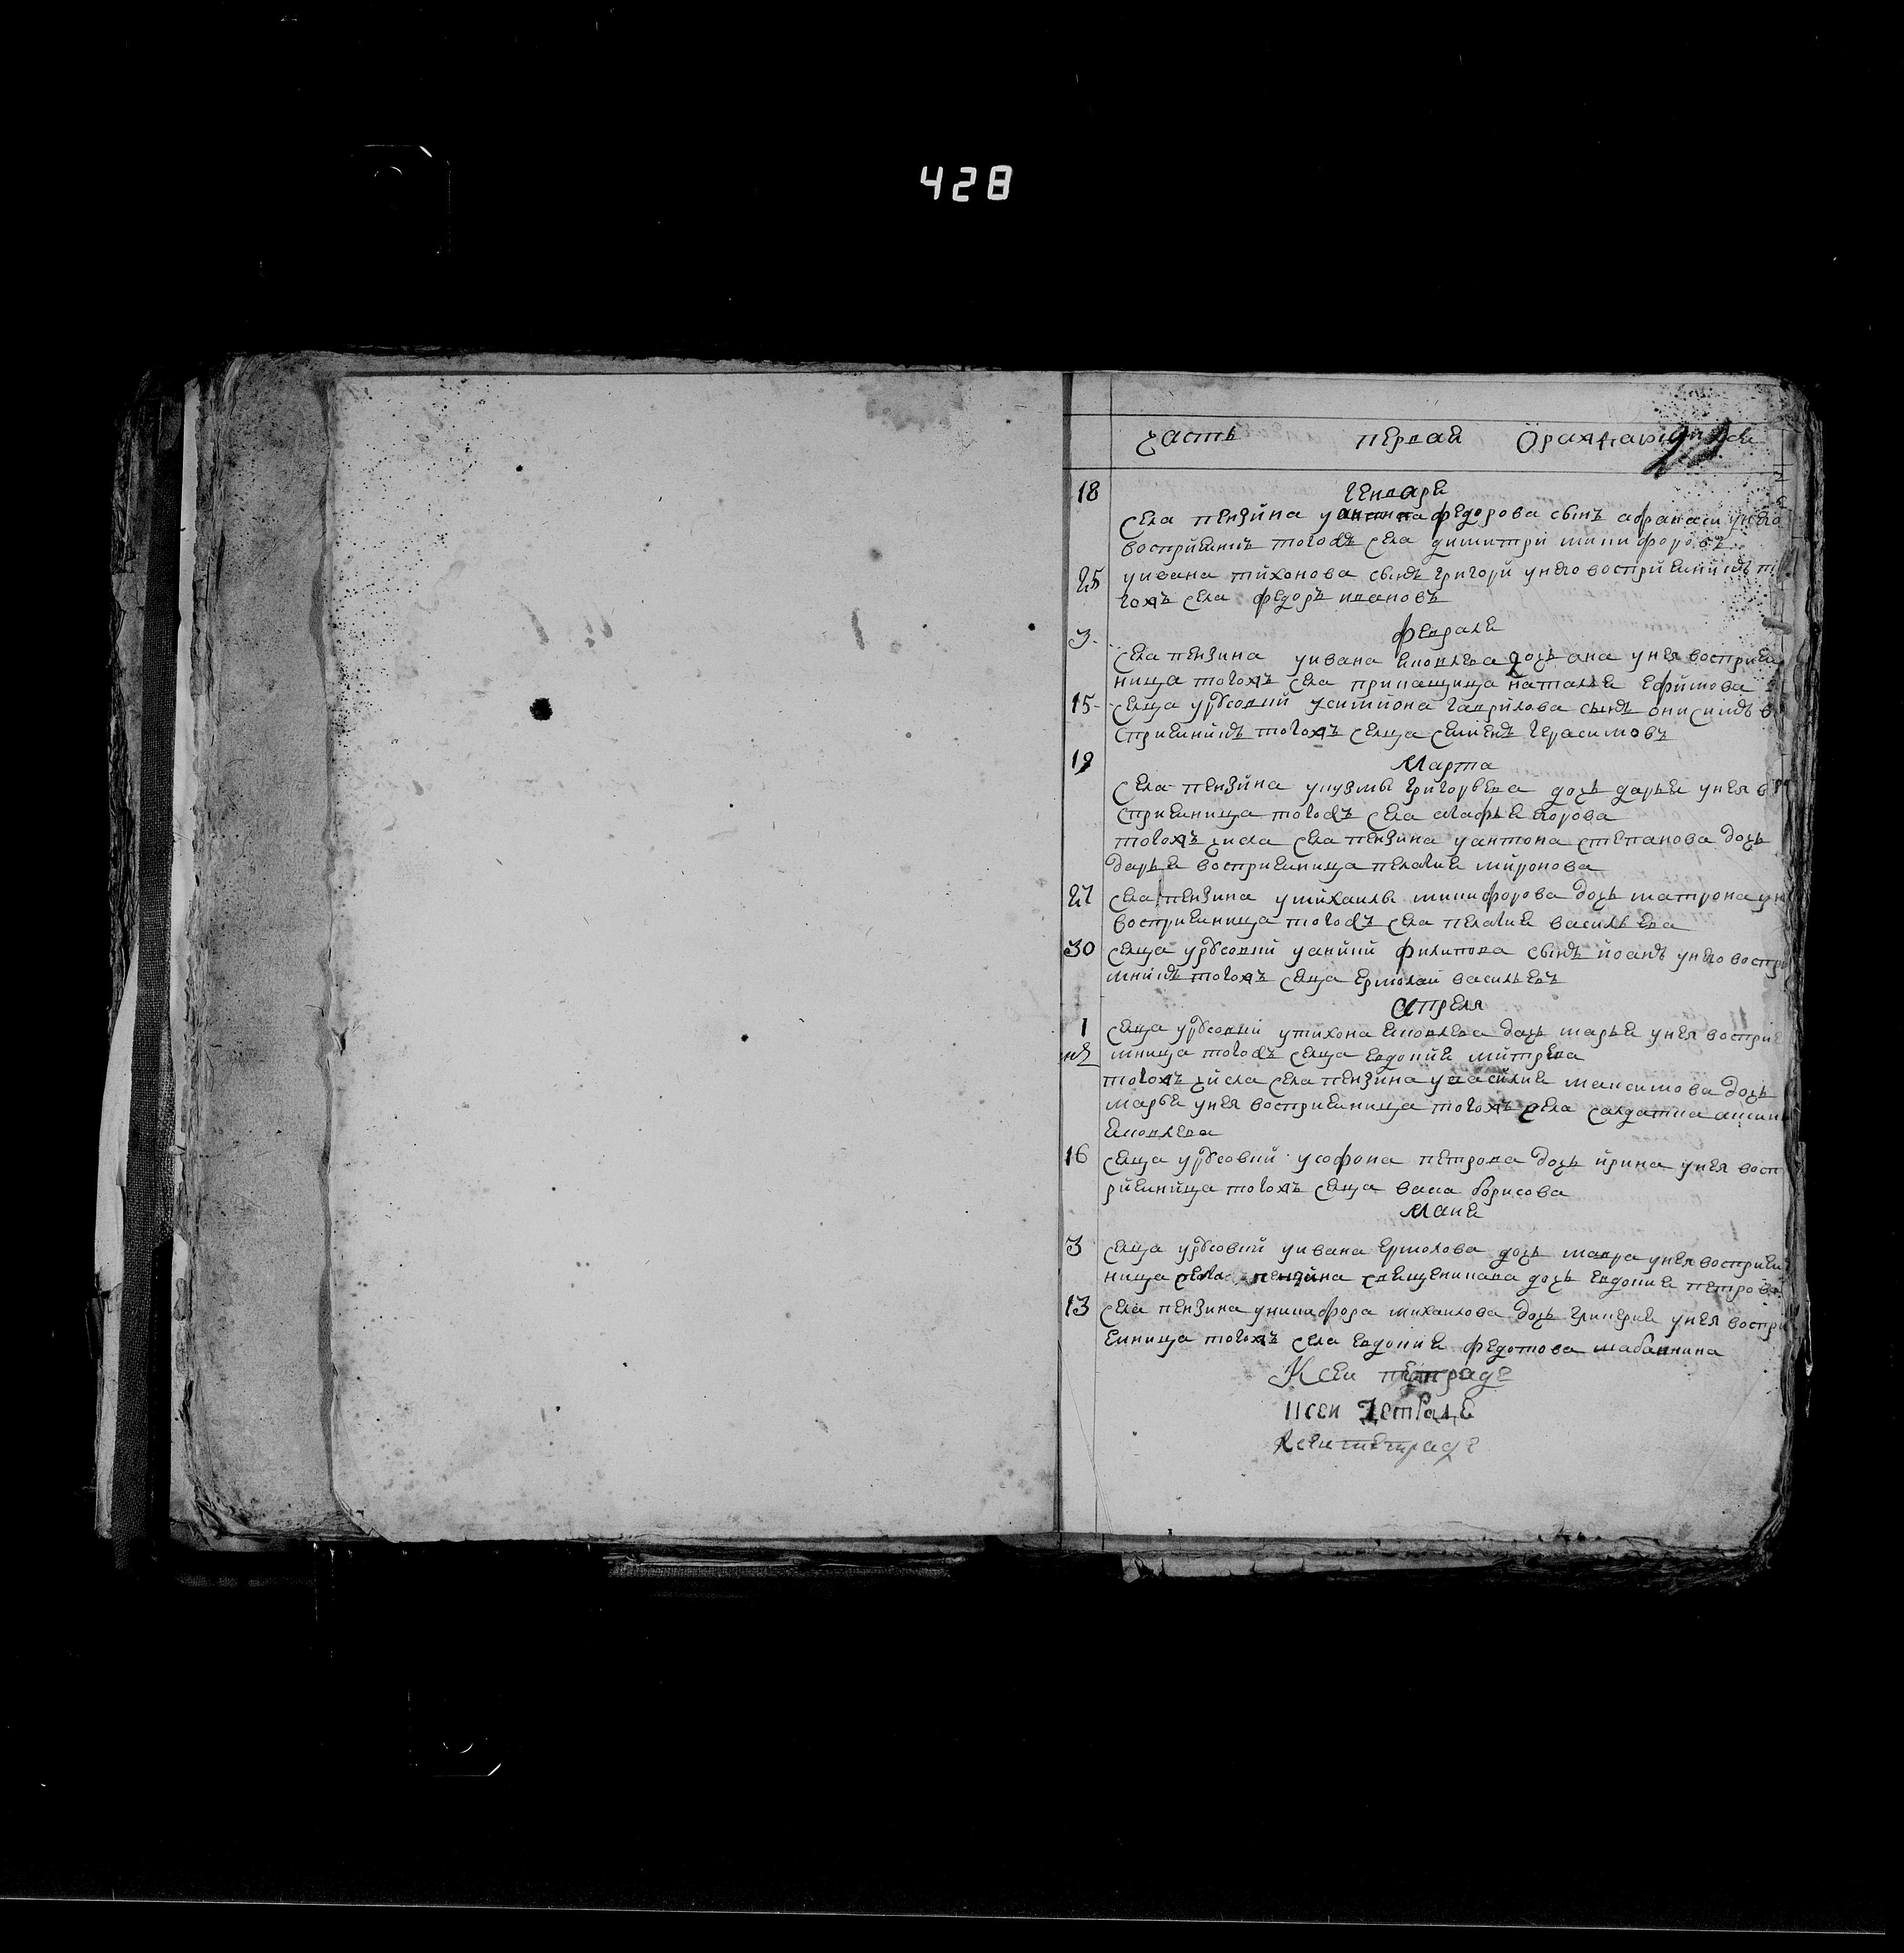 428
часть первая о раждающихся
генваря
18 села пензина у федорова сынъ афранаси унего
восприемникъ тогожъ села димитри никифоровъ
25 уивана тихонова сынъ григори унего восприемникъ т
гожъ села федоръ ивановъ
февраля
3 села пензина уивана яковлева дочь ана унея восприем
ница тогожъ села наталья ефимова
15 селца усимиона гаврилова сынъ онисимъ в
сприемникъ тогожъ селца семенъ герасимовъ
марта
19 села пензина укузмы григорьева дочь дарья унея в
сприемница тогожъ села агафья егорова
тогожъ числа села пензина уантона степанова дочь
дарья восприемница пелагия миронова
27 села пензина умихаилы никифорова дочь матрона ун
восприемница тогожъ села пелагия васильева
30 селца уании филипова сынъ иоанъ унего воспри
мникъ тогожъ селца ермолаи васильевъ
апреля
1 селца утихона яковлева дочь марья унея восприе
мница тогожъ селца евдокия митрева
тогожъ числа села пензина увасилия максимова дочь
марья унея восприемница тогожъ села салдатка
яковлева
16 селца усофона петрова дочь ирина унея восп
риемница тогожъ селца васа борисова
маия
3 селца уивана ермолова дочь мавра унея восприем
ница села пензина свещеникава дочь евдокия петрова
13 села пензина уникифора михаилова дочь гликерия унея воспри
емница тогожъ села евдокия федотова
К сеи тетраде
ксеи тетраде
ксеи тетраде